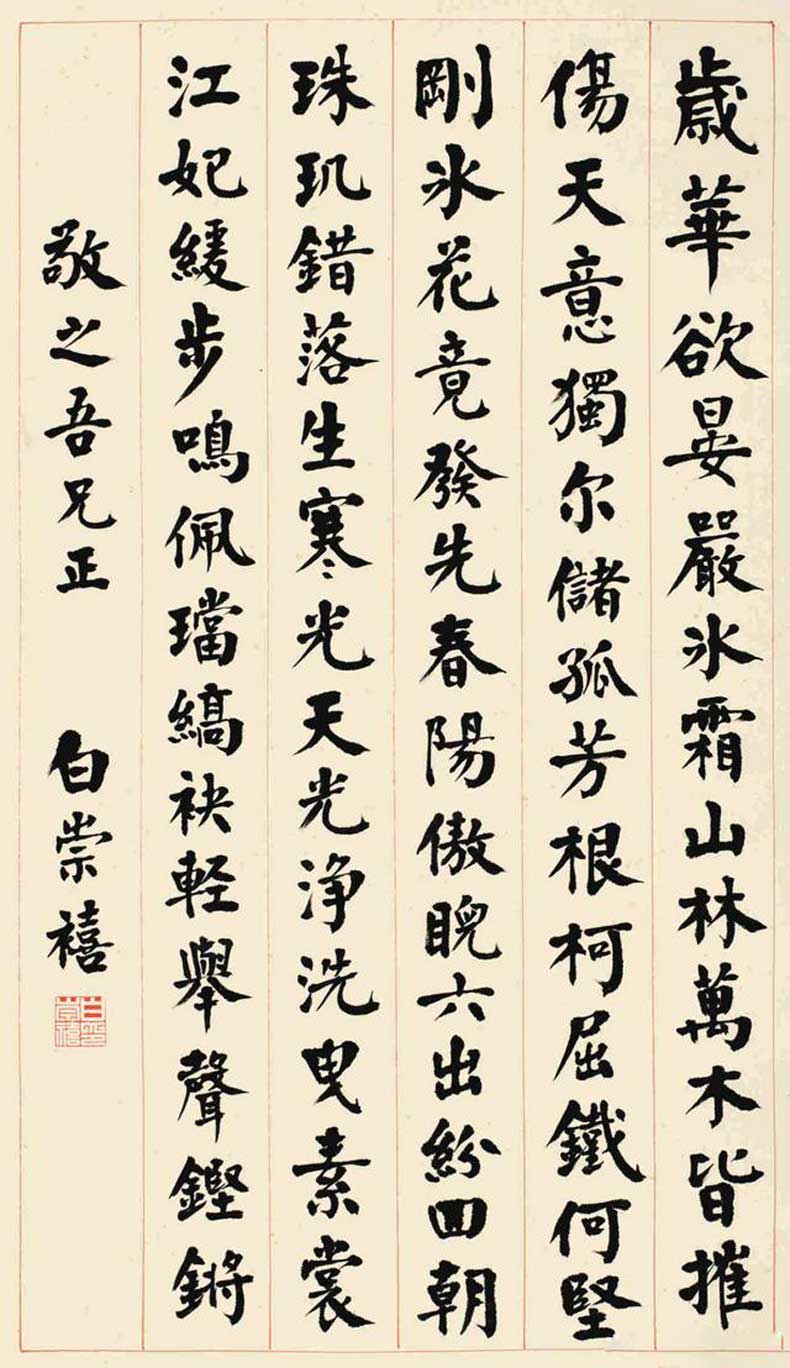 歲華欲晏嚴氷霜山林萬木皆摧
傷天意獨尔儲孤芳根柯屈鐵何堅
剛氷花竟發先春陽傲睨六出紛四朝
珠璣錯落生寒光天光浄洗曳素裳
江妃緩步鳴佩璫縞袂輕舉聲鏗鏘
敬之吾兄正 白崇禧